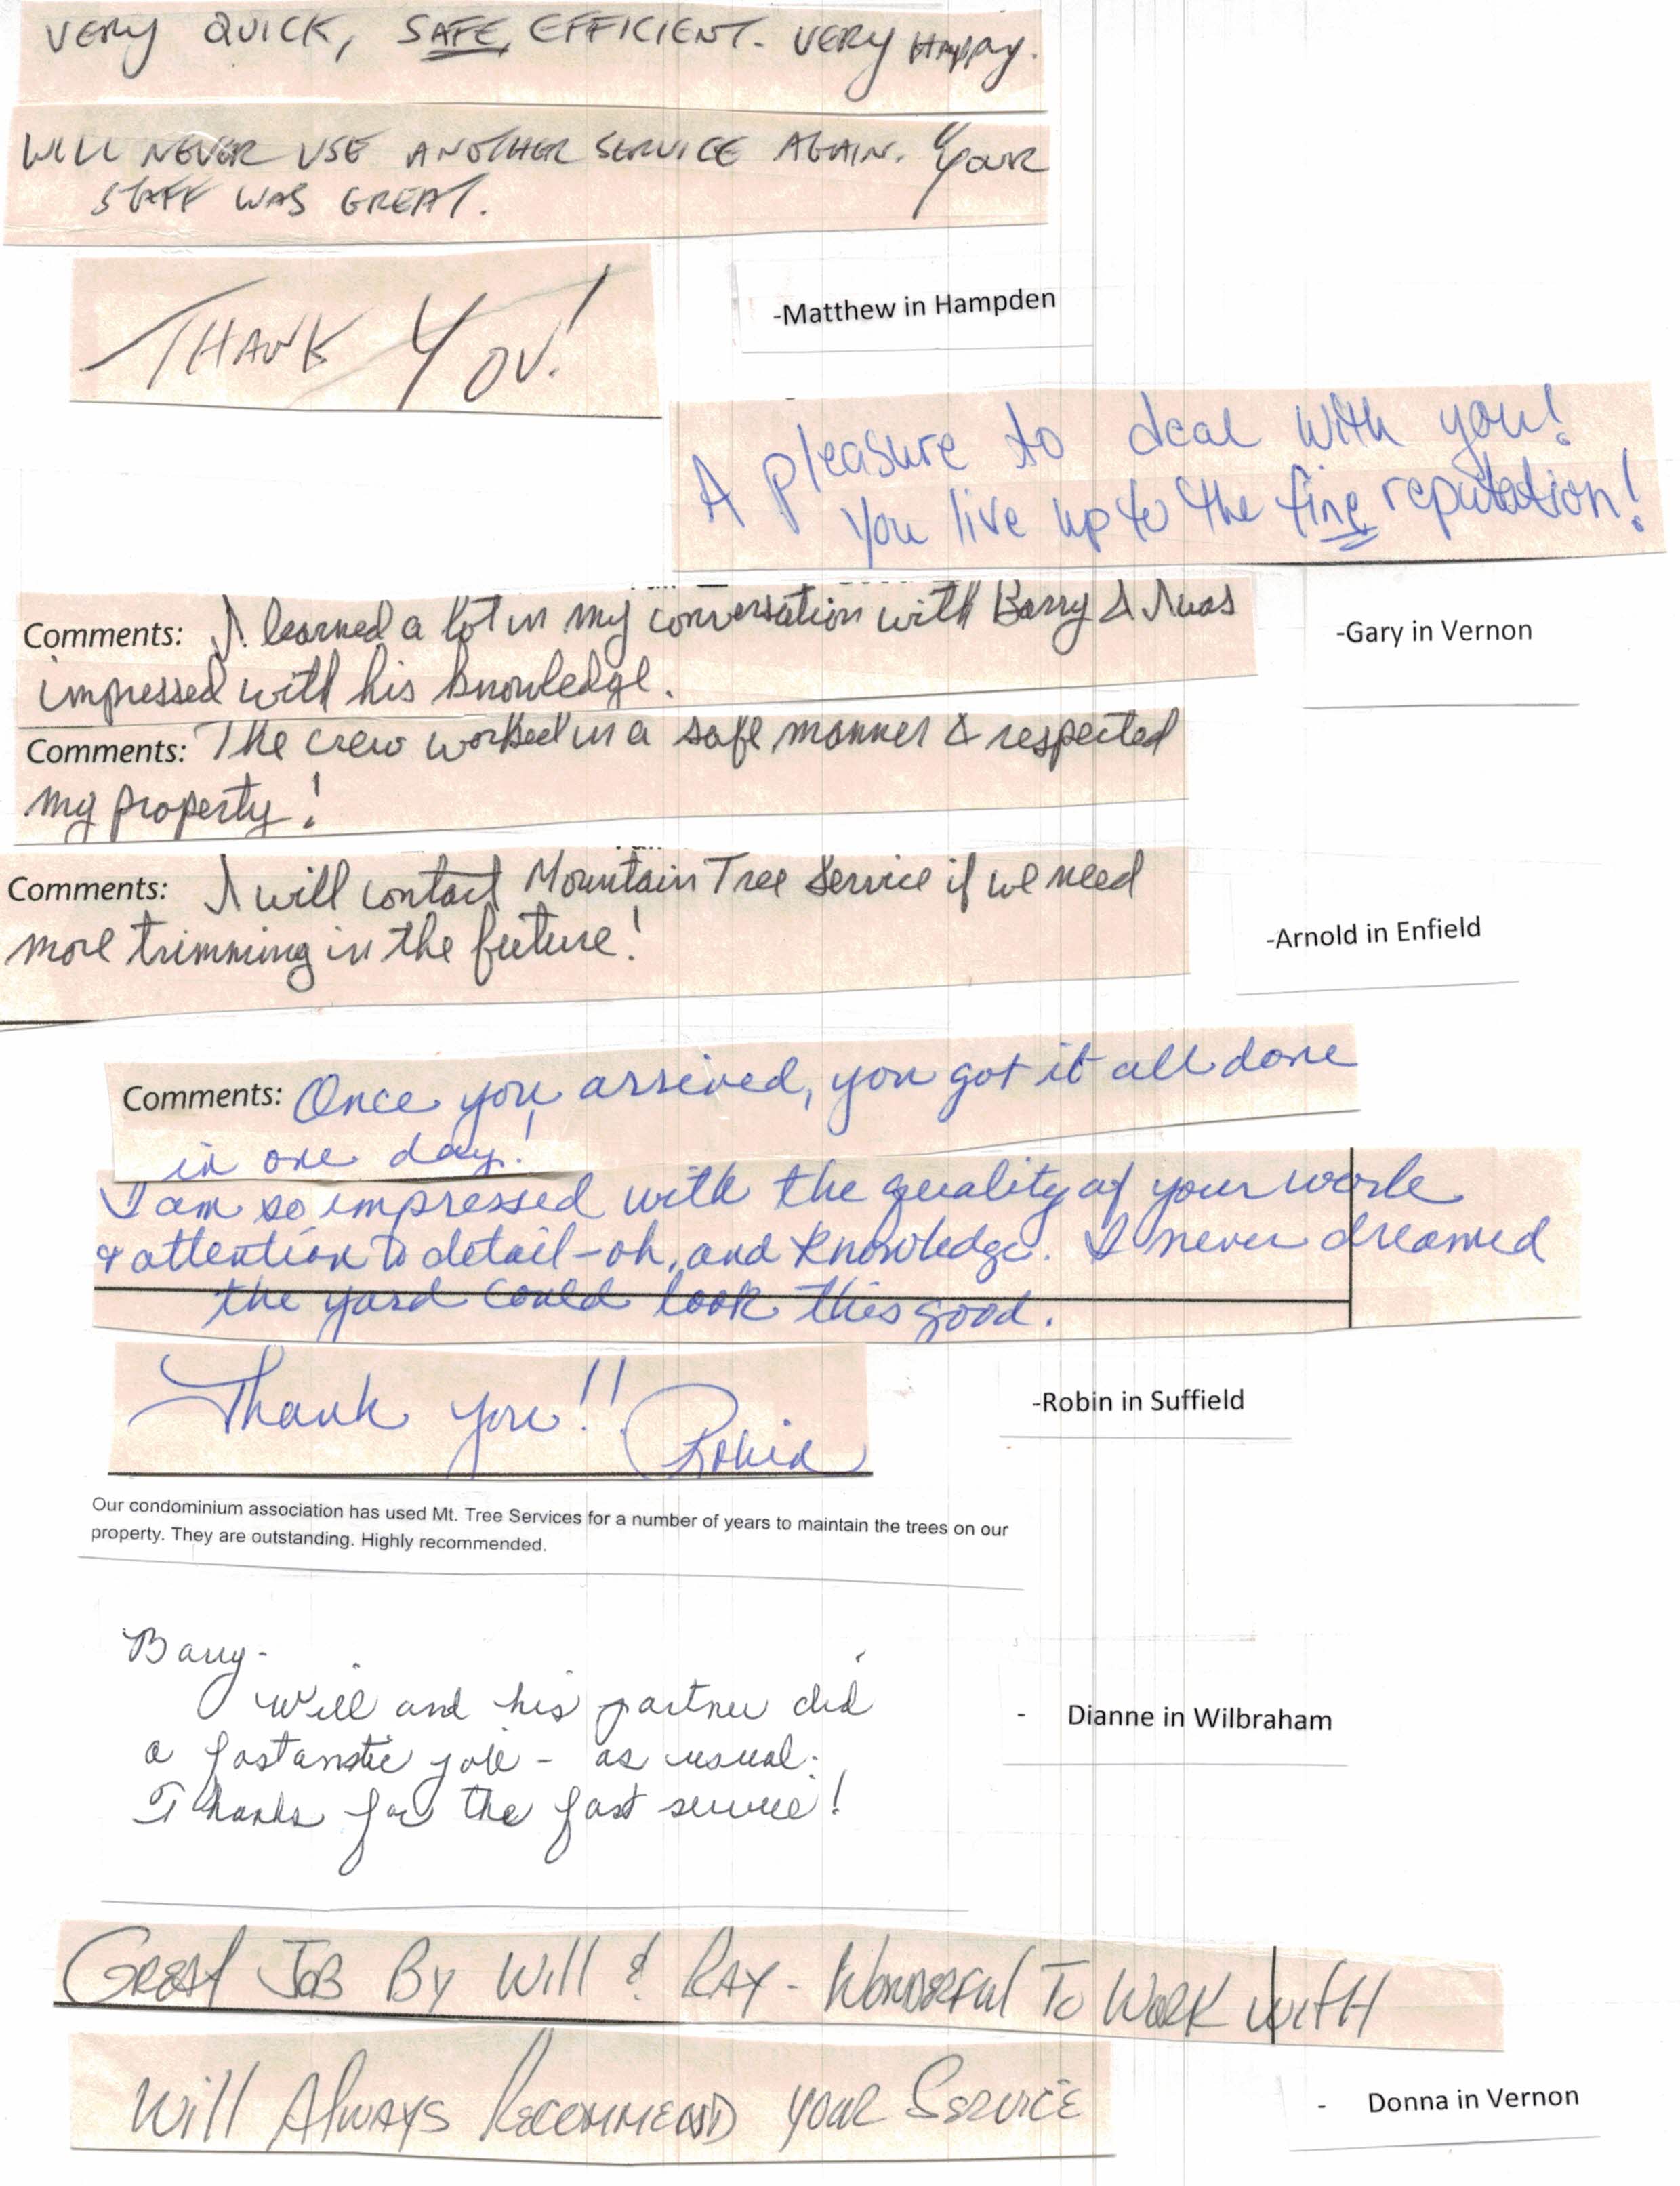 VERY QUICK, SAFE, EFFICIENT. VERY HAPPY.
WILL NEVER USE ANOTHER SERVICE AGAIN. YOUR
STAFF WAS GREAT.
THANK YOU!
-Matthew in Hampden
A pleasure to deal with you!
You live up to the fine reputation!
-Gary in Vernon
Comments: I learned a lot in my conversation with Barry & I was
impressed with his knowledge.
Comments: The crew worked in a safe manner & respected
my property!
Comments: I will contact Mountain Tree Service if we need
more trimming in the future!
-Arnold in Enfield
Comments: Once you arrived, you got it all done
in one day!
I am so impressed with the quality of your work
& attention to detail - oh, and knowledge. I never dreamed
the yard could look this good.
Thank you!! Robin
-Robin in Suffield
Our condominium association has used Mt. Tree Services for a number of years to maintain the trees on our
property. They are outstanding. Highly recommended.
Barry-
Will and his partner did
a fastanstic job - as usual.
Thanks for the fast service!
- Dianne in Wilbraham
GREAT JOB BY Will & RAY - WONDERFul To WORK WitH
Will AlWAYS RECOMMEND YOUR SERVICE
- Donna in Vernon